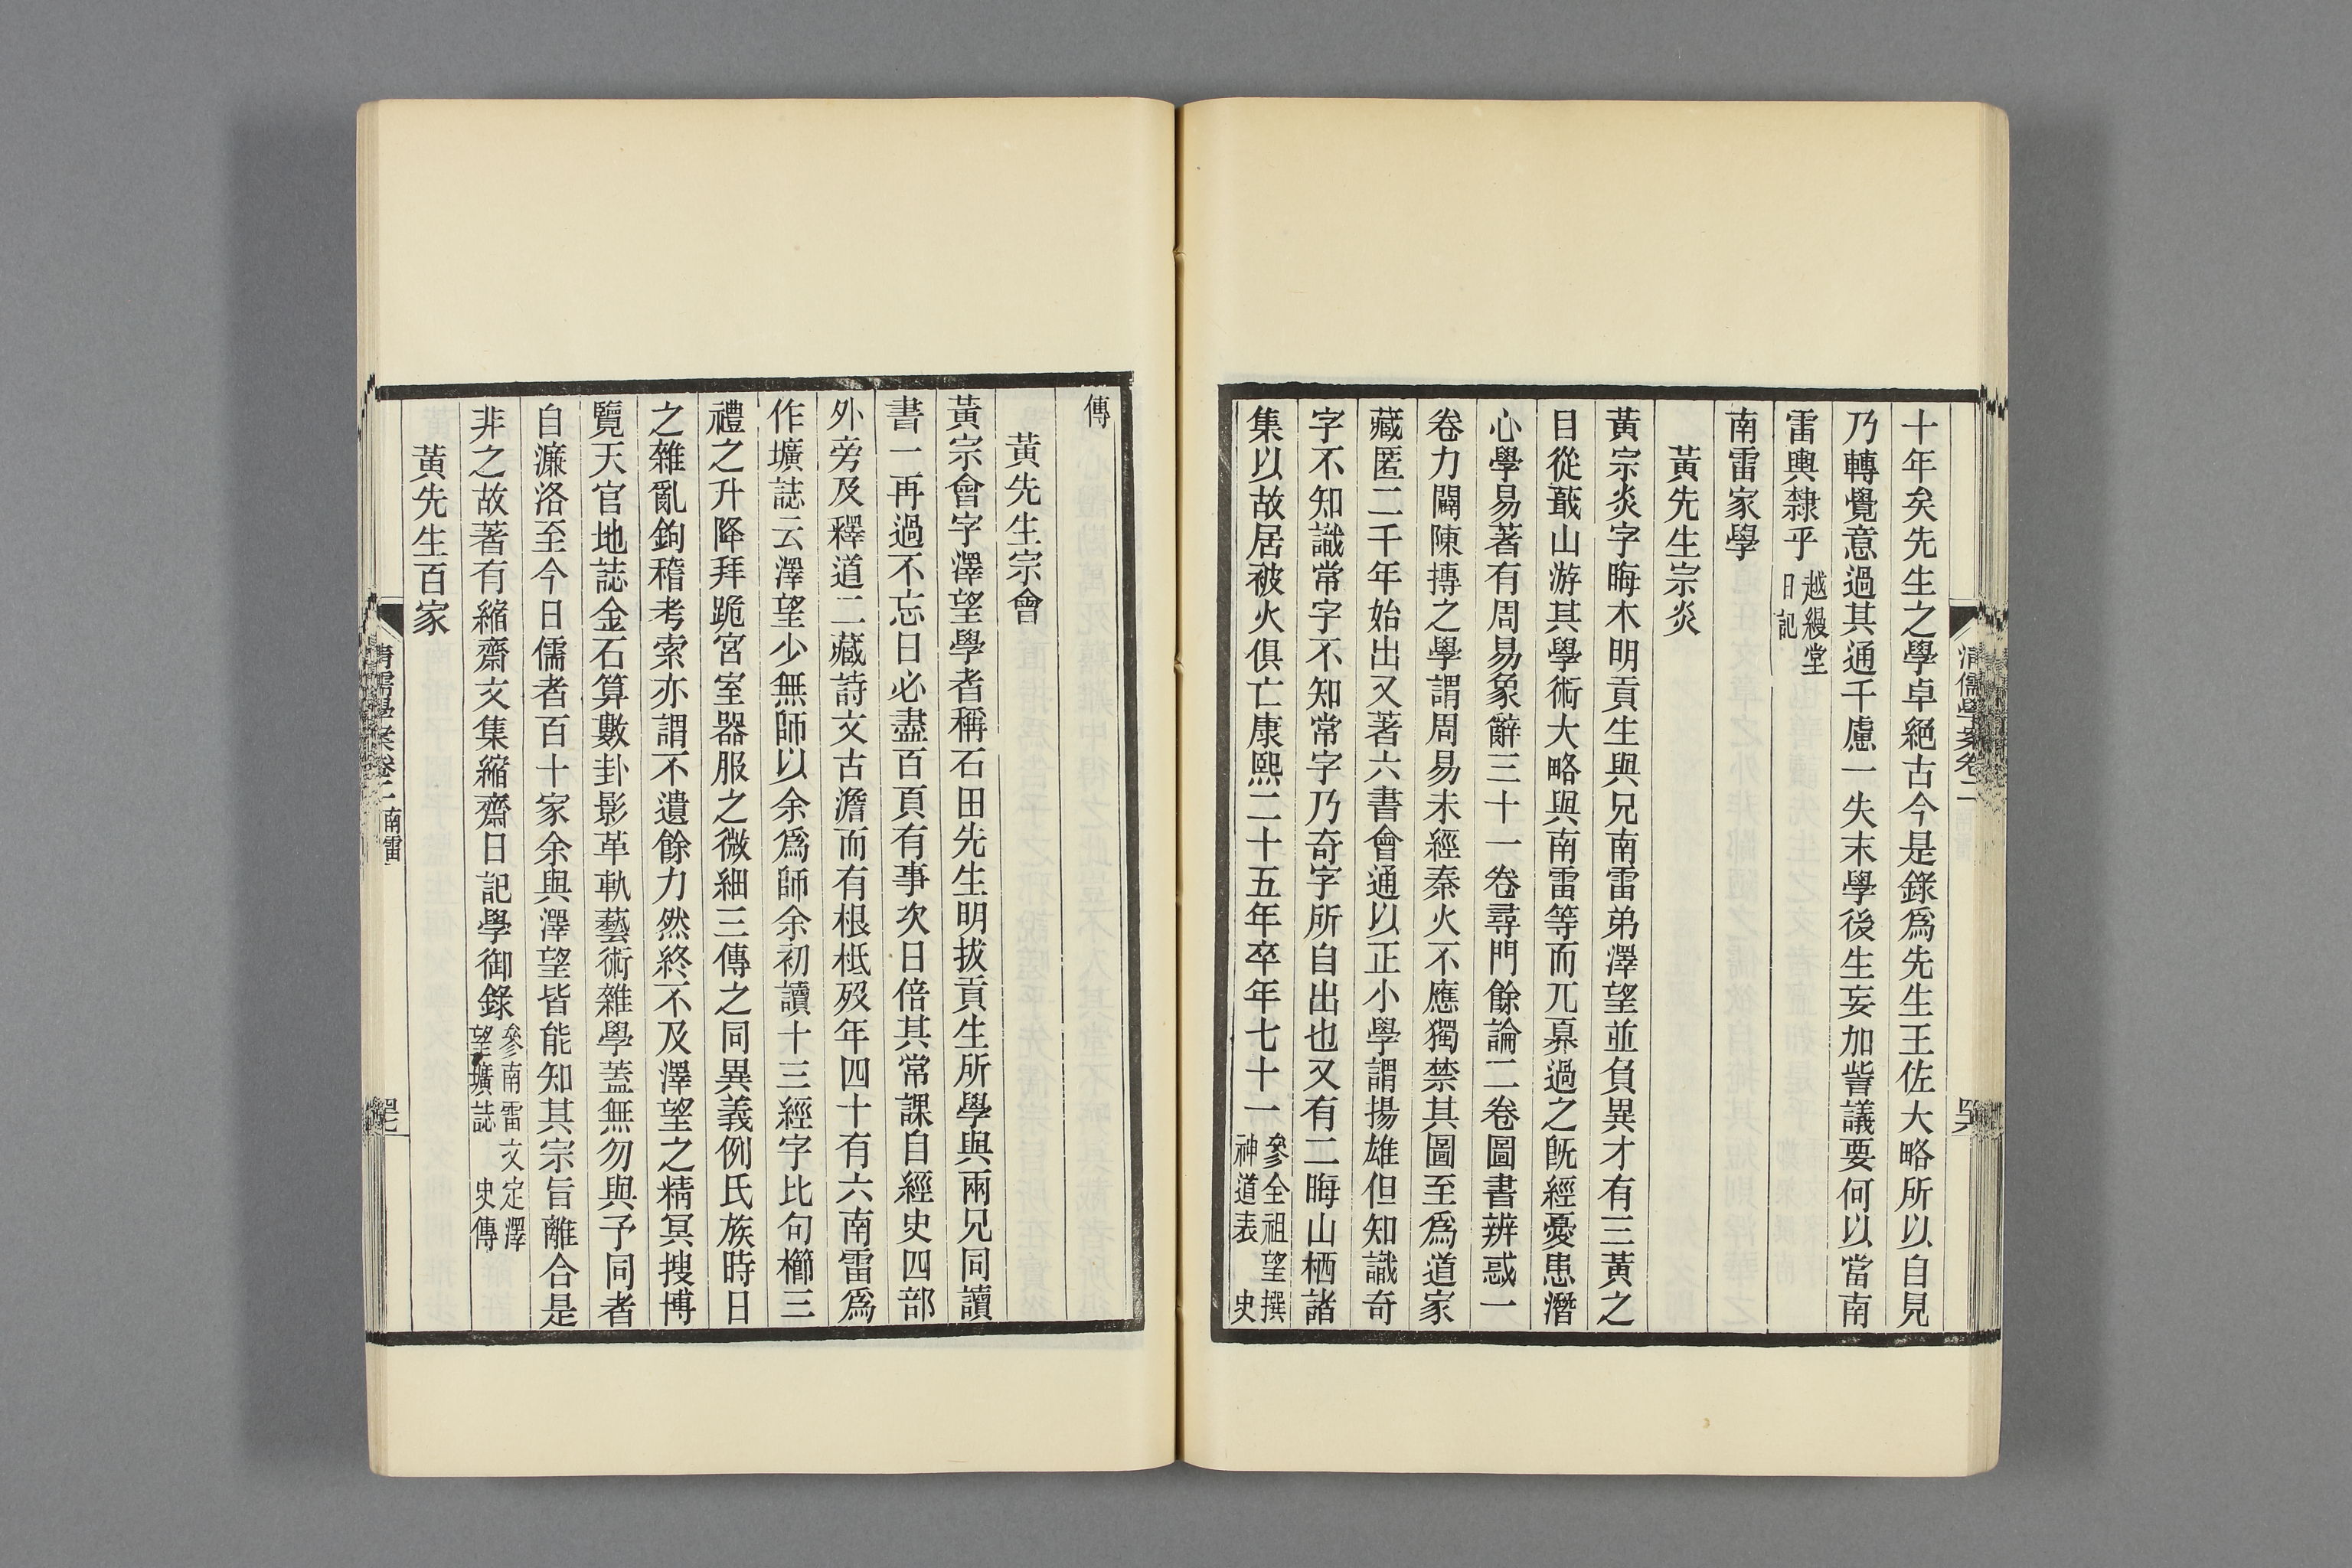 清儒學案卷二
十年矣先生之學卓絕古今是錄爲先生王佐大略所以自見
乃轉覺意過其通千慮一失末學後生妄加訾議要何以當南
雷輿隸乎越縵堂
日記
南雷家學
黃先生宗炎
黃宗炎字晦木明貢生與兄南雷弟澤望並負異才有三黃之
目從蕺山游其學術大略與南雷等而兀奡過之旣經憂患潛
心學易著有周易象辭三十一卷尋門餘論二卷圖書辨惑一
卷力闢陳摶之學謂周易未經秦火不應獨禁其圖至爲道家
藏匿二千年始出又著六書會通以正小學謂揚雄但知識奇
字不知識常字不知常字乃奇字所自出也又有二晦山栖諸
集以故居被火俱亡康熙二十五年卒年七十一參全祖望撰
神道表 史
傳
黃先生宗會
黃宗會字澤望學者稱石田先生明拔貢生所學與兩兄同讀
書一再過不忘日必盡百頁有事次日倍其常課自經史四部
外旁及釋道二藏詩文古澹而有根柢歿年四十有六南雷爲
作壙誌云澤望少無師以余爲師余初讀十三經字比句櫛三
禮之升降拜跪宮室器服之微細三傳之同異義例氏族時日
之雜亂鉤稽考索亦謂不遺餘力然終不及澤望之精冥搜博
覽天官地誌金石算數卦影革軌藝術雜學蓋無勿與予同者
自濂洛至今日儒者百十家余與澤望皆能知其宗旨離合是
非之故著有縮齋文集縮齋日記學御錄參南雷文定澤
望壙誌 史傳
黃先生百家
清儒學案卷二 南雷